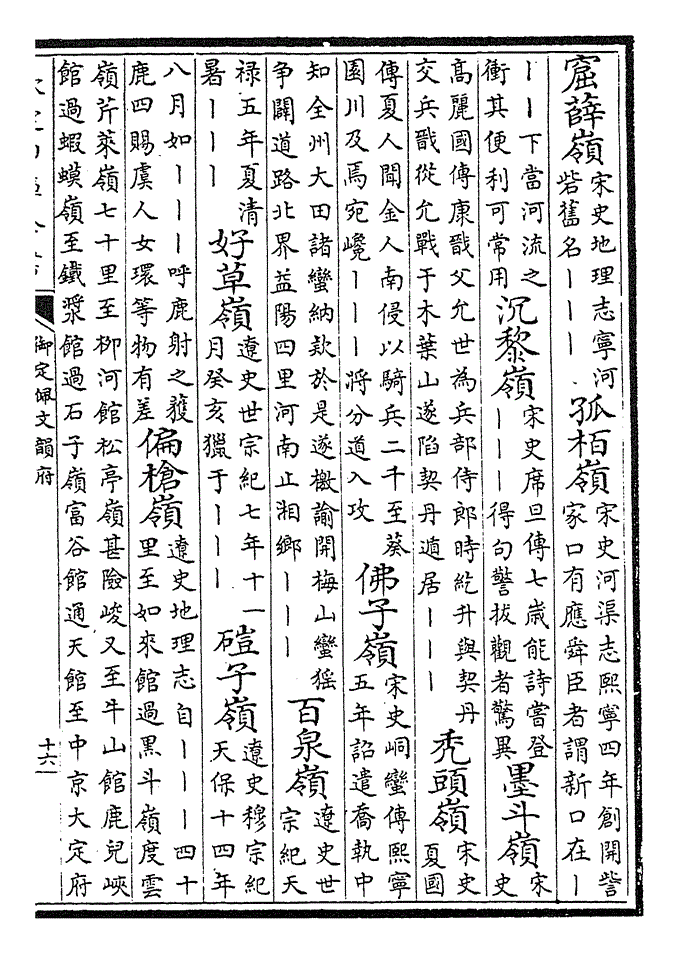 窟薛嶺宋史地理志寧河
砦舊名丨丨丨
孤栢嶺宋史河渠志熙寧四年創開訾
家口有應舜臣者謂新口在丨
丨丨下當河流之
衝其便利可常用
沉黎嶺宋史席旦傳七歲能詩嘗登
丨丨丨得句警拔觀者驚異
墨斗嶺宋
史
高麗國傳康戩父允世為兵部侍郎時紇升與契丹
交兵戩從允戰于木葉山遂陷契丹遁居丨丨丨
禿頭嶺宋史
夏國
傳夏人聞金人南侵以騎兵二千至葵
園川及馬宛巉丨丨丨將分道入攻
佛子嶺宋史峒蠻傳熙寧
五年詔遣喬執中
知全州大田諸蠻納款於是遂檄諭開梅山蠻猺
爭闢道路北界益陽四里河南止湘鄉丨丨丨
百泉嶺遼史世
宗紀天
祿五年夏清
暑丨丨丨
好草嶺遼史世宗紀七年十一
月癸亥獵于丨丨丨
磑子嶺遼史穆宗紀
天保十四年
八月如丨丨丨呼鹿射之獲
鹿四賜虞人女環等物有差
偏槍嶺遼史地理志自丨丨丨四十
里至如來館過黑斗嶺度雲
嶺芹萊嶺七十里至柳河館松亭嶺甚險峻又至牛山館鹿兒峽
館過蝦蟆嶺至鐵漿館過石子嶺富谷館通天館至中京大定府
御定佩文韻府
十六